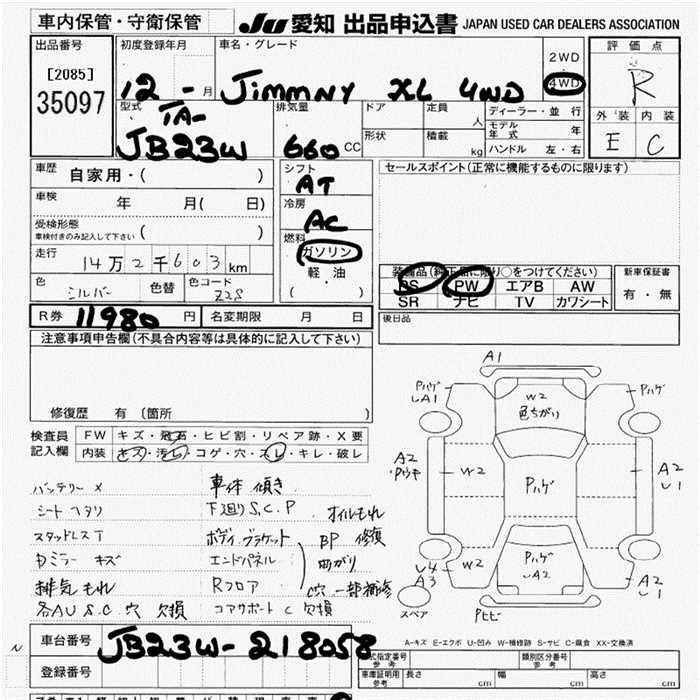 車内保管・守衛保管
JU 愛知 出品申込書 JAPAN USED CAR DEALERS ASSOCIATION
出品番号
[2085]
35097
初度登録年月
車名・グレード
12 - 月 Jimmny XL 4WD
2WD
4WD
評価点
R
外装 内装
E C
型式
TA-
JB23W
排気量
660 CC
ドア
定員
人
形状
積載
kg
ディーラー・並行
モデル年式 年
ハンドル 左・右
車歴
自家用・( )
車検
年 月( 日)
受検形態
車検付きのみ記入して下さい ( )
走行
14万2千603km
色
シルバー
色替
色コード
Z2S
シフト
AT
冷房
AC
燃料
ガソリン
軽・油
( )
セールスポイント(正常に機能するものに限ります)
装備品(純正品に限り○をつけてください)
PS PW エアB AW
SR ナビ TV カワシート
新車保証書
有・無
R券 11980 円
名変期限 月 日
後日品
注意事項申告欄(不具合内容等は具体的に記入して下さい)
修復歴 有 〔箇所 〕
検査員記入欄
FW キズ・飛石・ヒビ割・リペア跡・X要
内装 キズ・汚レ・コゲ・穴・スレ・キレ・破レ
バッテリー×
シートヘタリ
スタッドレスT
Dミラー キズ
排気もれ
各AU S.C 穴 欠損
車体 傾き
下廻りS.C.P オイルもれ
ボディブラケット BP 修復
エンドパネル 曲がり
Rフロア C穴 一部補修
コアサポート C 欠損
A1
Pハゲ
UA1
W2
色ちがり
Pハゲ
A2
W2
Pハゲ
W2
A2
U1
U4
A3
W2
Pハゲ
UA2
A2
U1
スペア
Pヒビ
A-キズ E-エクボ U-凹み W-補修跡 S-サビ C-腐食 XX-交換済
車台番号 JB23W-218058
登録番号
N
区指定番号 参考
類別区分番号 参考
車庫証明用 参考
長さ cm 幅 cm 高さ cm